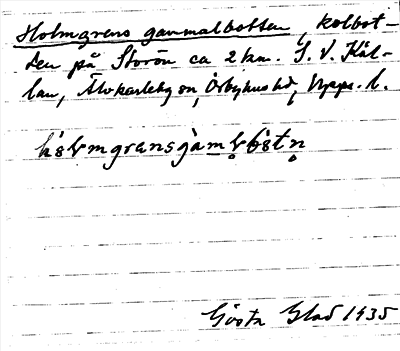 Holmgrens gammalbotten, kolbot-
den på Storön ca 2 km. S. V. Käl-
lan, Älvkarleby sn, Örbyhus hd, Upps. l.
hólmgrensgàmlbótn
Gösta Glad 1935